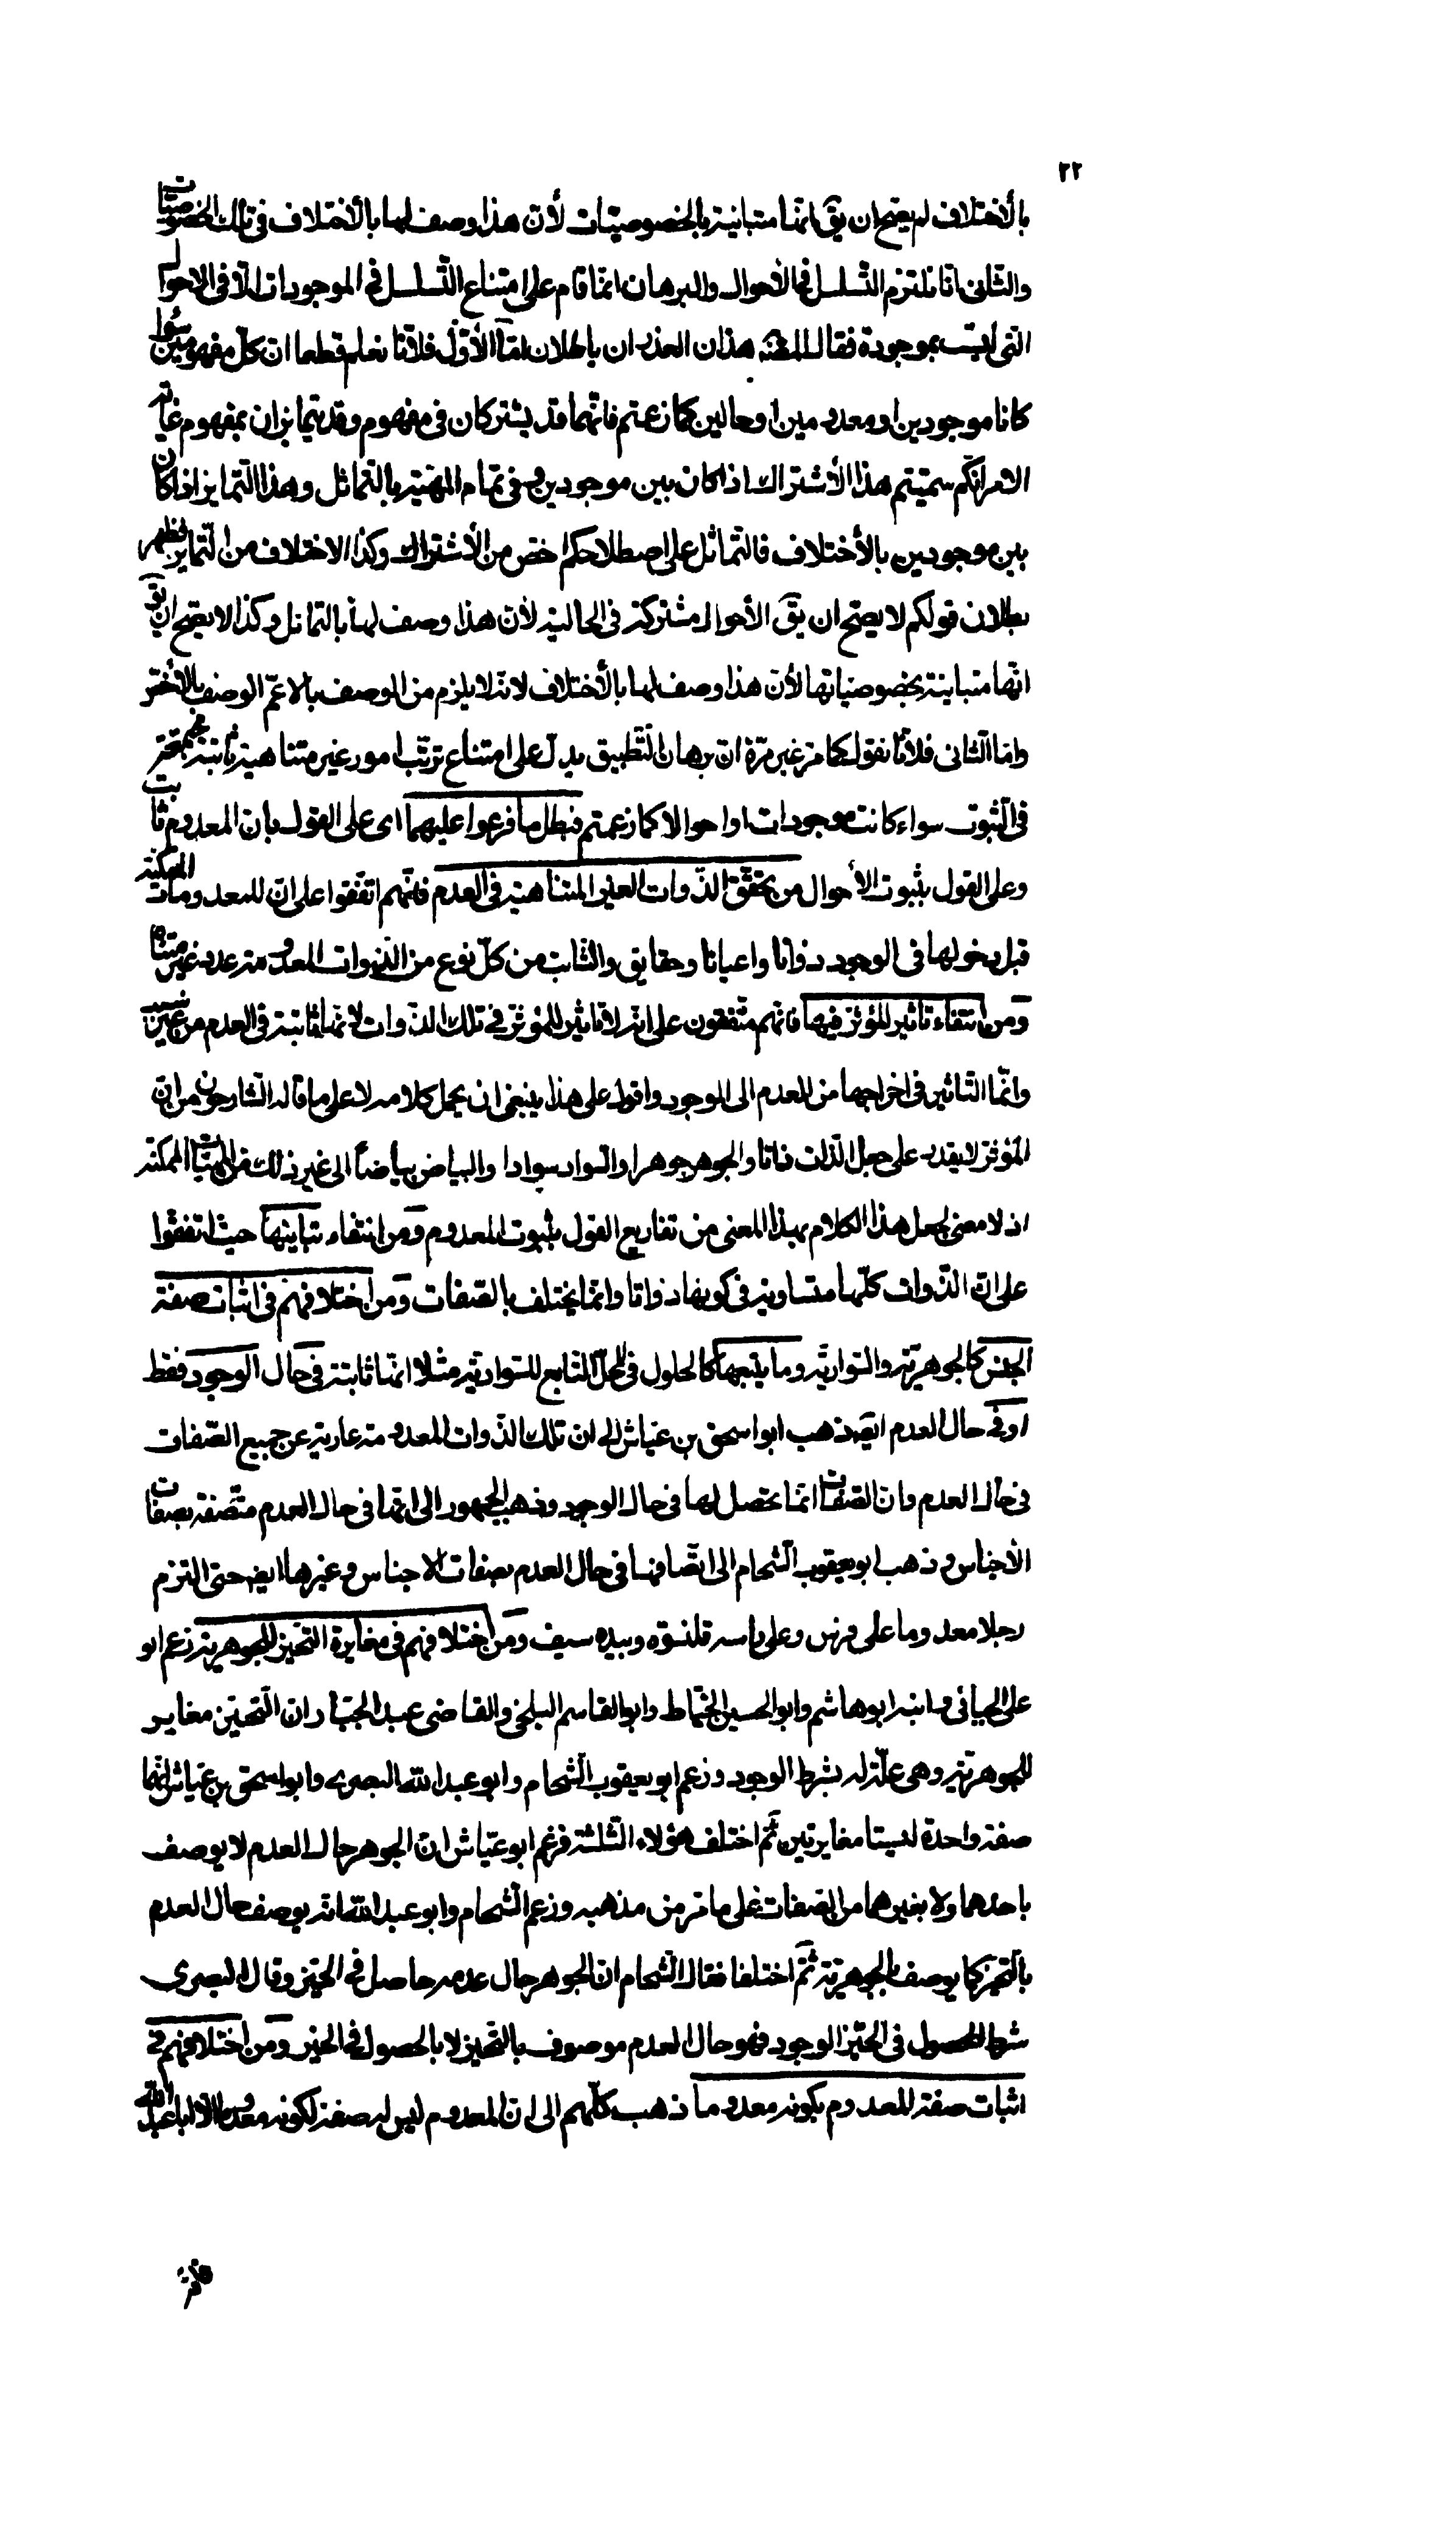 ٢٢
بالأختلاف لم يصح ان يقَ انها متباينة بالخصوصيّات لأنّ هذا وصف لها بالأختلاف فى تلك الخصوصيّات
والثانى انا نلتزم التّسلسل فى الأحوال والبرهان انّما قام على امتناع التّسلسل فى الموجودات لا فى الاحوال
التى ليست بموجودة فقال المصنّف هذان العذران باطلان امّا الأوّل فلأنّا نعلم قطعا ان كلّ مفهومين سواء
كانا موجودين او معدومين او حالين كما زعمتم فانّهما قد يشتركان فى مفهوم وقد يتمايزان بمفهوم غاية
الامر انّكم سميّتم هذا الأشتراك اذا كان بين موجودين وفى تمام المهيّة بالتماثل وهذا التّمايز اذا كان
بين موجودين بالأختلاف فالتّماثل على اصطلاحكم اخصّ من الأشتراك وكذا الاختلاف من التّمايز فظهر
بطلان قولكم لا يصحّ ان يقَ الأحوال مشتركة فى الحالية لأنّ هذا وصف لها بالتماثل وكذا لا يصحّ ان يقَ
انّها متباينة بخصوصيّاتها لأنّ هذا وصف لها بالأختلاف لانّه لا يلزم من الوصف بالاعمّ الوصف بالأخصّ
وامّا الثّانى فلأنّا نقول كما مرّ غير مرّة انّ برهان التّطبيق يدلّ على امتناع ترتّب امور غير متناهية ثابتة مجتمعة
فى الثّبوت سواء كانت موجودات او احوالا كما زعمتم فبطل ما فرعوا عليهما اى على القول بأن المعدوم ثابت
وعلى القول بثبوت الأحوال من تحقّق الذّوات الغير المتناهية فى العدم فانّهم اتّفقوا على انّ للمعدومات الممكنة
قبل دخولها فى الوجود ذواتا واعيانا وحقايق والثّابت من كلّ نوع من الذّوات المعدومة عدد غير متناه
ومن انتفاء تأثير المؤثّر فيها فانّهم متّفقون على انّه لا تأثير للمؤثّر فى تلك الذّوات لانّها ثابتة فى العدم من غير سبب
وانّما التّاثير فى اخراجها من العدم الى الوجود واقول على هذا ينبغى ان يحمل كلامه لا على ما قاله الشّارحون من ان
المؤثر لا يقدر على جعل الذّات ذاتا والجوهر جوهرا والسّواد سوادا والبياض بياضاً الى غير ذلك من المهيّات الممكنة
اذ لا معنى لجعل هذا الكلام بهذا المعنى من تفاريع القول بثبوت المعدوم ومن انتفاء تباينها حيث اتفقوا
على انّ الذّوات كلّها متساوية فى كونها ذواتا وانّما يختلف بالصّفات ومن اختلافهم فى اثبات صفة
الجنس كالجوهريّة والسّواديّة وما يتبعها كالحلول فى المحلّ التّابع للسّواديّة مثلا انّها ثابتة فى حال الوجود فقط
او فى حال العدم ايضا ذهب ابو اسحق بن عيّاش الى ان تلك الذّوات المعدومة عارية عن جميع الصّفات
فى حال العدم وانّ الصّفات انّما تحصل لها فى حال الوجود وذهب الجمهور الى انها فى حال العدم متّصفة بصفات
الأجناس وذهب ابو يعقوب الشّحام الى اتّصافها فى حال العدم بصفات الاجناس وغيرها ايضا حتى التزم
رجلا معدوما على فرس وعلى راسه قلنسوة وبيده سيف ومن اختلافهم فى مغايرة التّحيّز للجوهرية زعم ابو
على الجبائى وابنه ابو هاشم وابو الحسين الخيّاط وابو القاسم البلخى والقاضى عبد الجبّار انّ التّحيّز مغاير
للجوهريّة وهى علّة له بشرط الوجود وزعم ابو يعقوب الشّحام وابو عبد الله البصرى وابو اسحق بن عيّاش انّهما
صفة واحدة ليستا مغايرتين ثمّ اختلف هؤلاء الثّلثة فزعم ابو عيّاش انّ الجوهر حال العدم لا يوصف
باحدهما ولا بغيرهما من الصّفات على ما مرّ من مذهبه وزعم الشّحام وابو عبد الله انّه يوصف حال العدم
بالتّحيّز كما يوصف بالجوهريّة ثمّ اختلفا فقال الشّحام ان الجوهر حال عدمه حاصل فى الحيّز وقال البصرى
شرط الحصول فى الحيّز الوجود فهو حال العدم موصوف بالتّحيز لا بالحصول فى الحيّز ومن اختلافهم فى
اثبات صفة للمعدوم بكونه معدوما ذهب كلّهم الى ان المعدوم ليس له صفة لكونه معدوما الّا ابا عبد الله